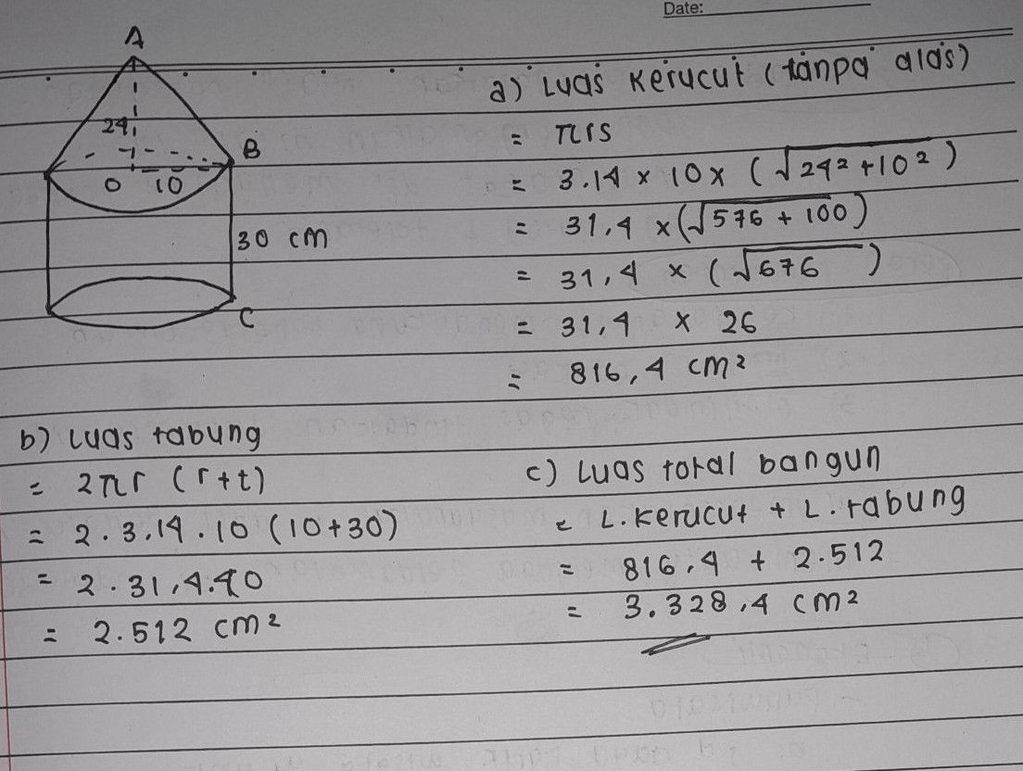 Date:
A
24
B
O 10
30 cm
C
a) Luas Kerucut (tanpa alas)
= πrs
= 3.14 × 10 × (√24² + 10²)
= 31,4 × (√576 + 100)
= 31,4 × (√676)
= 31,4 × 26
= 816,4 cm²
b) Luas tabung
= 2πr (r+t)
= 2.3,14.10 (10+30)
= 2.31,4.40
= 2.512 cm²
c) Luas total bangun
= L.Kerucut + L.tabung
= 816,4 + 2.512
= 3.328,4 cm²